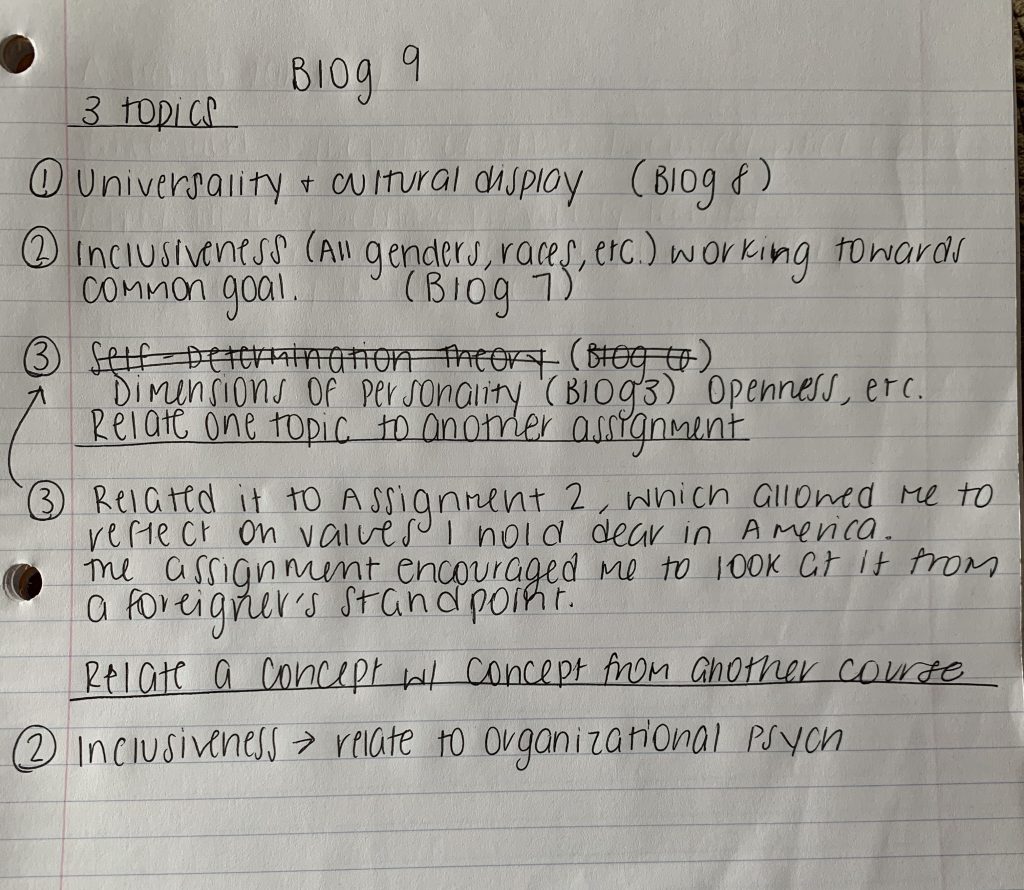 Blog 9
3 Topics
① Universality + cultural display (Blog 8)
② Inclusiveness (All genders, races, etc.) working towards
common goal. (Blog 7)
③ Self-Determination Theory (Blog 6)
Dimensions of personality (Blog 3) Openness, etc.
Relate one topic to another assignment
③ Related it to Assignment 2, which allowed me to
reflect on values I hold dear in America.
The assignment encouraged me to look at it from
a foreigner's standpoint.
Relate a concept w/ concept from another course
② Inclusiveness → relate to organizational psych